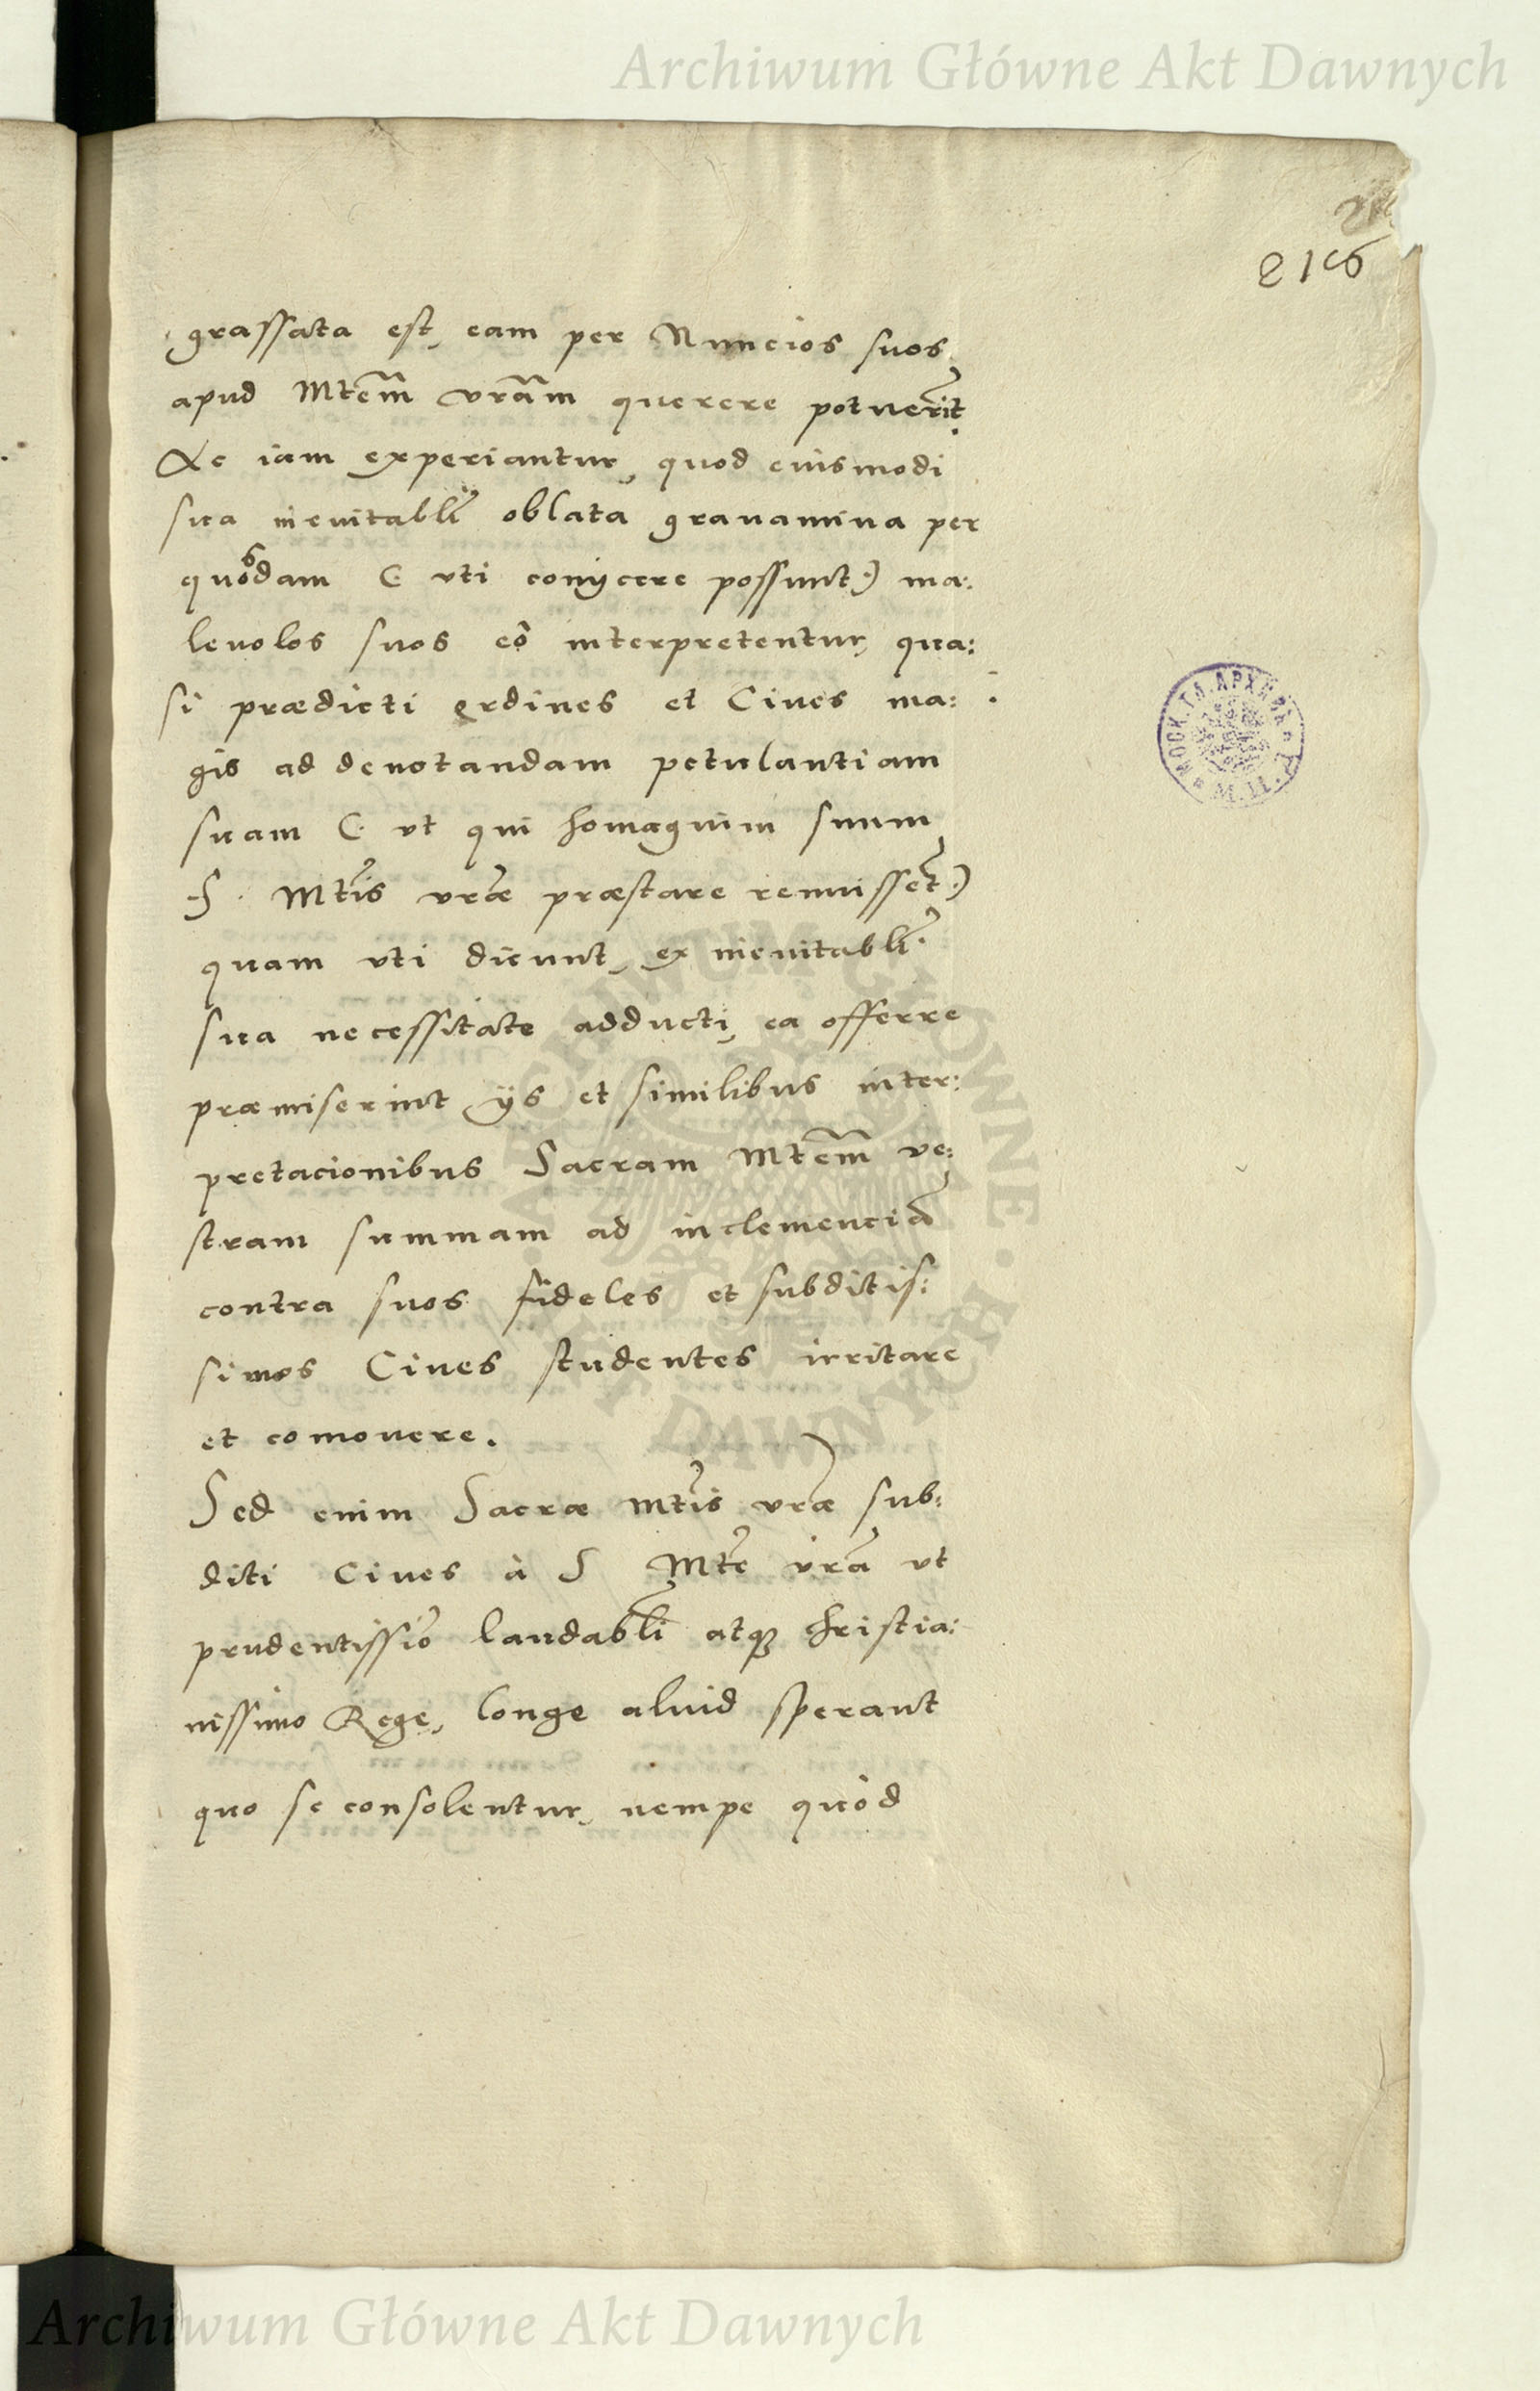 Archiwum Główne Akt Dawnych
216
grassata est, eam per Nuncios suos
apud Mtem vram querere potuerit
Ac iam experiantur, quod eiusmodi
sua ineuitabli oblata grauamina per
quosdam (: vti conijcere possunt:) ma:
leuolos suos eô interpretentur, qua:
si prædicti ordines et Ciues ma:
gis ad denotandam petulantiam
suam (: vt qui homagium suum
S. Mtis vræ præstare renuissent:)
quam vti dicunt, ex ineuitabli
sua necessitate adducti, ea offerre
præmiserint ijs et similibus inter:
pretacionibus Sacram Mtem ve:
stram summam ad inclemenciã
contra suos fideles et subditis:
simos Ciues studentes irritare
et comouere.
Sed enim Sacræ Mtis vræ sub:
diti Ciues à S Mte vra vt
prudentissio laudabli atque christia:
nissimo Rege, longe aliud sperant
quo se consolentur, nempe quòd
МОСК.ГЛ.АРХИВЪ М.И.Д.
ARCHIWUM GŁÓWNE AKT DAWNYCH
Archiwum Główne Akt Dawnych